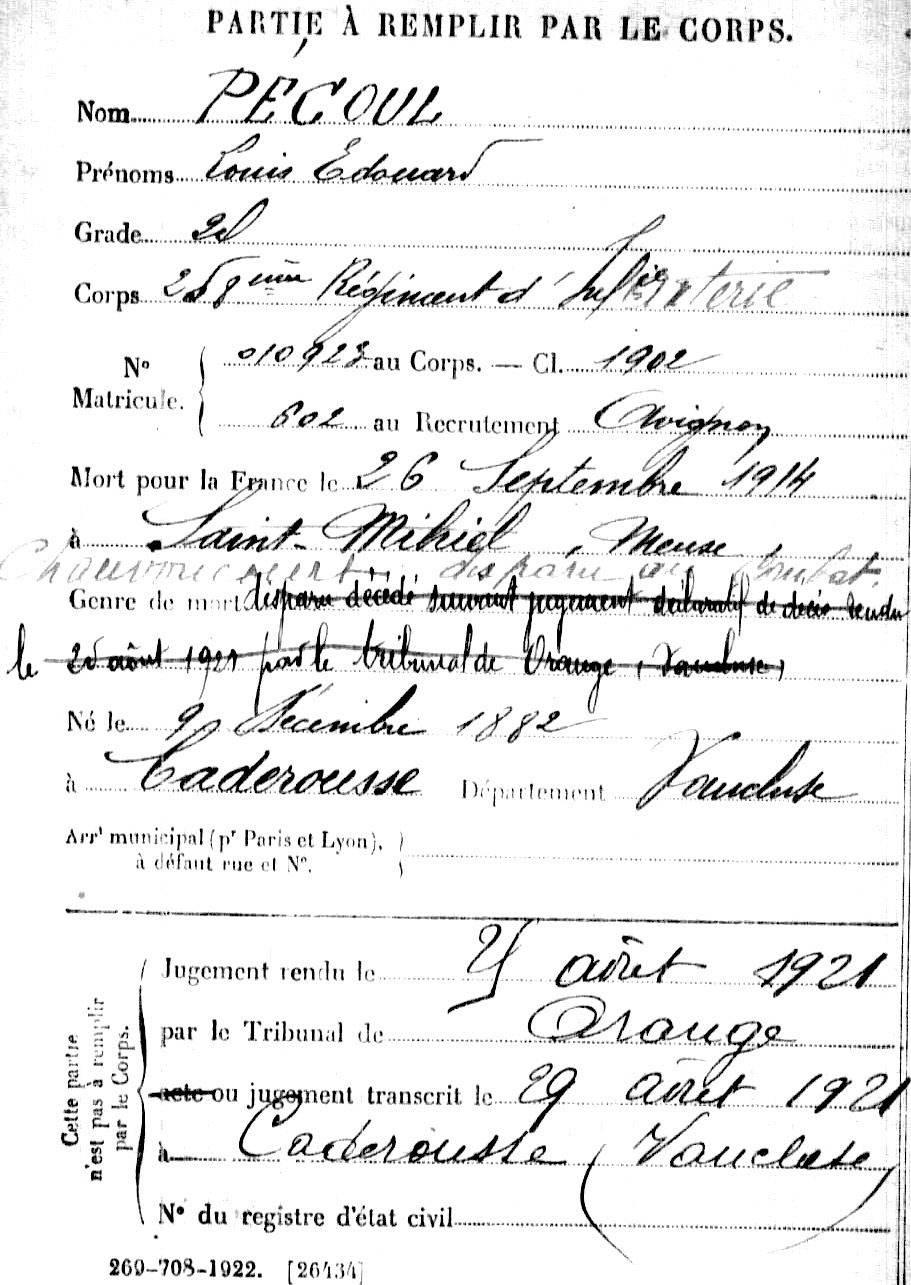 PARTIE À REMPLIR PAR LE CORPS.
Nom PÉCOUL
Prénoms Louis Edouard
Grade 2d
Corps 258ième Régiment d'Infanterie
No Matricule. 010923 au Corps. — Cl. 1902
602 au Recrutement Avignon
Mort pour la France le 26 Septembre 1914
à Saint-Mihiel, Meuse,
Chauvoncourt disparu au Combat.
Genre de mort disparu décédé suivant jugement déclaratif de décès rendu
le 25 août 1921 par le tribunal de Orange (Vaucluse)
Né le 9 Décembre 1882
à Caderousse Département Vaucluse
Arrt municipal (pr Paris et Lyon),
à défaut rue et No.
Cette partie
n'est pas à remplir
par le Corps.
Jugement rendu le août 1921
par le Tribunal de Orange
acte ou jugement transcrit le 29 août 1921
à Caderousse (Vaucluse)
No du registre d'état civil
269-708-1922. [26434]